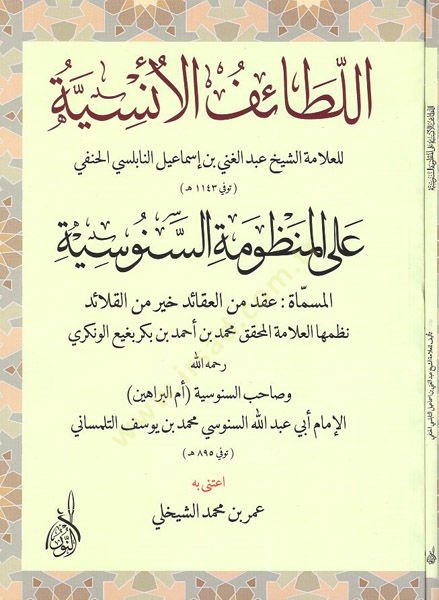 اللطائف الأنسية
للعلامة الشيخ عبد الغني بن إسماعيل النابلسي الحنفي
( توفي ١١٤٣ هـ )
على المنظومة السنوسية
المسمّاة : عقد من العقائد خير من القلائد
نظمها العلامة المحقق محمد بن أحمد بن بكر بغيع الونكري
رحمه الله
وصاحب السنوسية ( أم البراهين )
الإمام أبي عبد الله السنوسي محمد بن يوسف التلمساني
( توفي ٨٩٥ هـ )
اعتنى به
عمر بن محمد الشيخلي